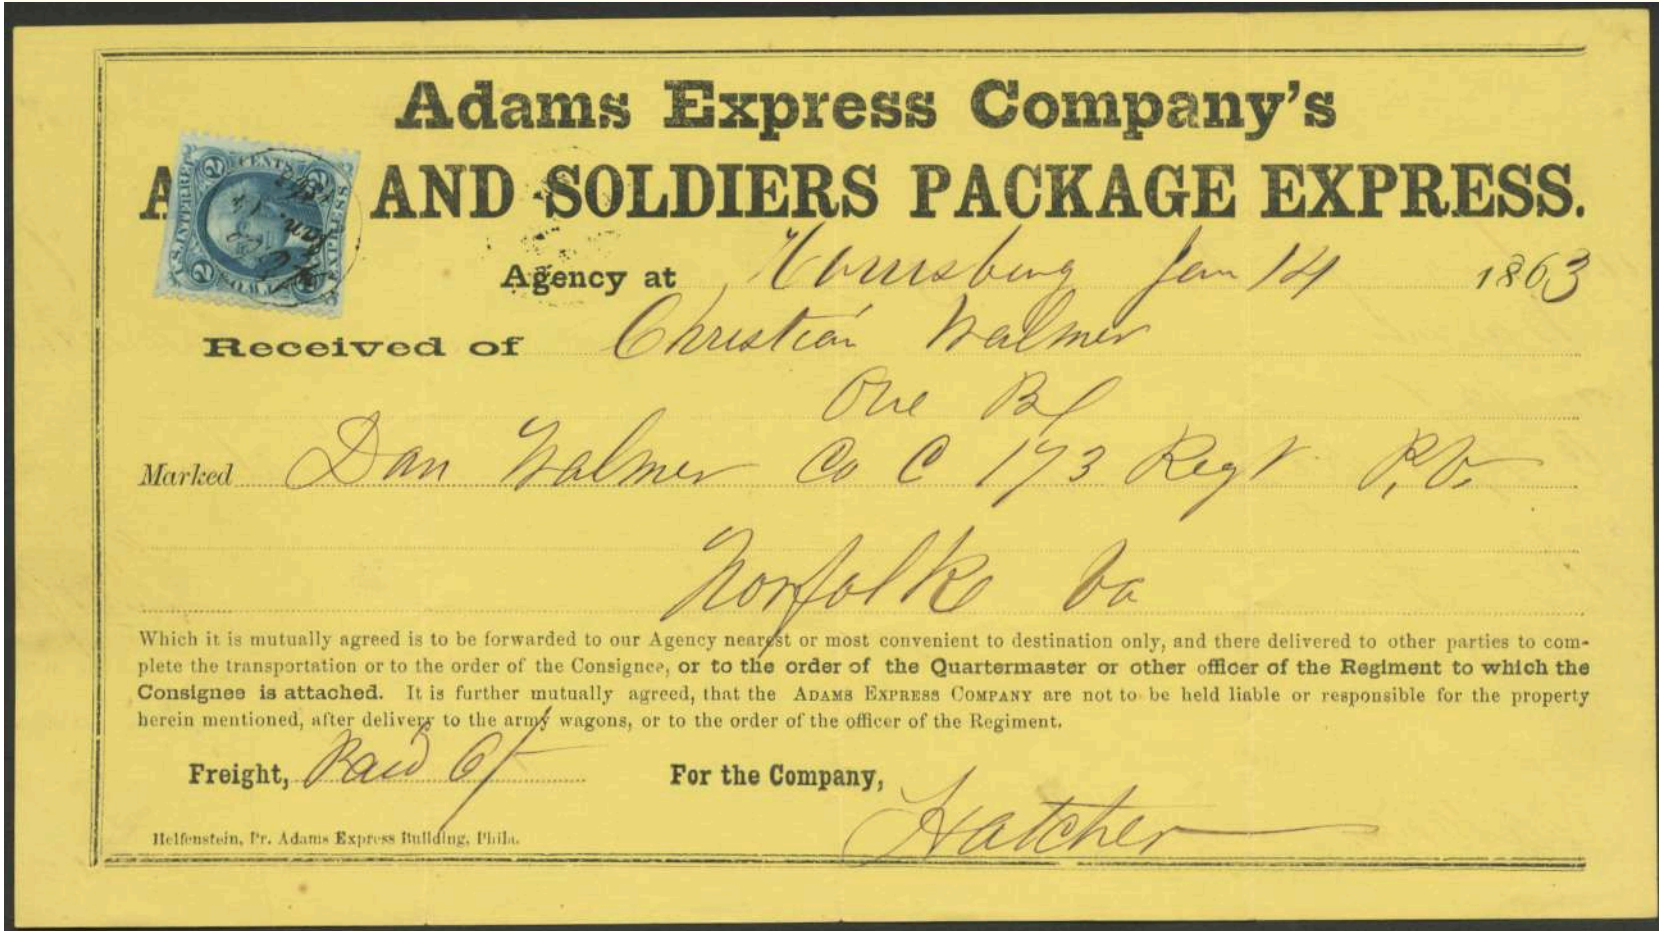 Adams Express Company's
A AND SOLDIERS PACKAGE EXPRESS.
U.S. INTER. REV.
2 CENTS 2
EXPRESS
2 TWO
Jan. 14
1863
Agency at Harrisburg Jan 14 1863
Received of Christian Walmer
One Bx
Marked Dan Walmer Co C 173 Regt P.V.
Norfolk Va
Which it is mutually agreed is to be forwarded to our Agency nearest or most convenient to destination only, and there delivered to other parties to com-
plete the transportation or to the order of the Consignee, or to the order of the Quartermaster or other officer of the Regiment to which the
Consignee is attached. It is further mutually agreed, that the ADAMS EXPRESS COMPANY are not to be held liable or responsible for the property
herein mentioned, after delivery to the army wagons, or to the order of the officer of the Regiment.
Freight, Paid 6/ For the Company,
Hatcher
Helfenstein, Pr. Adams Express Building, Phila.